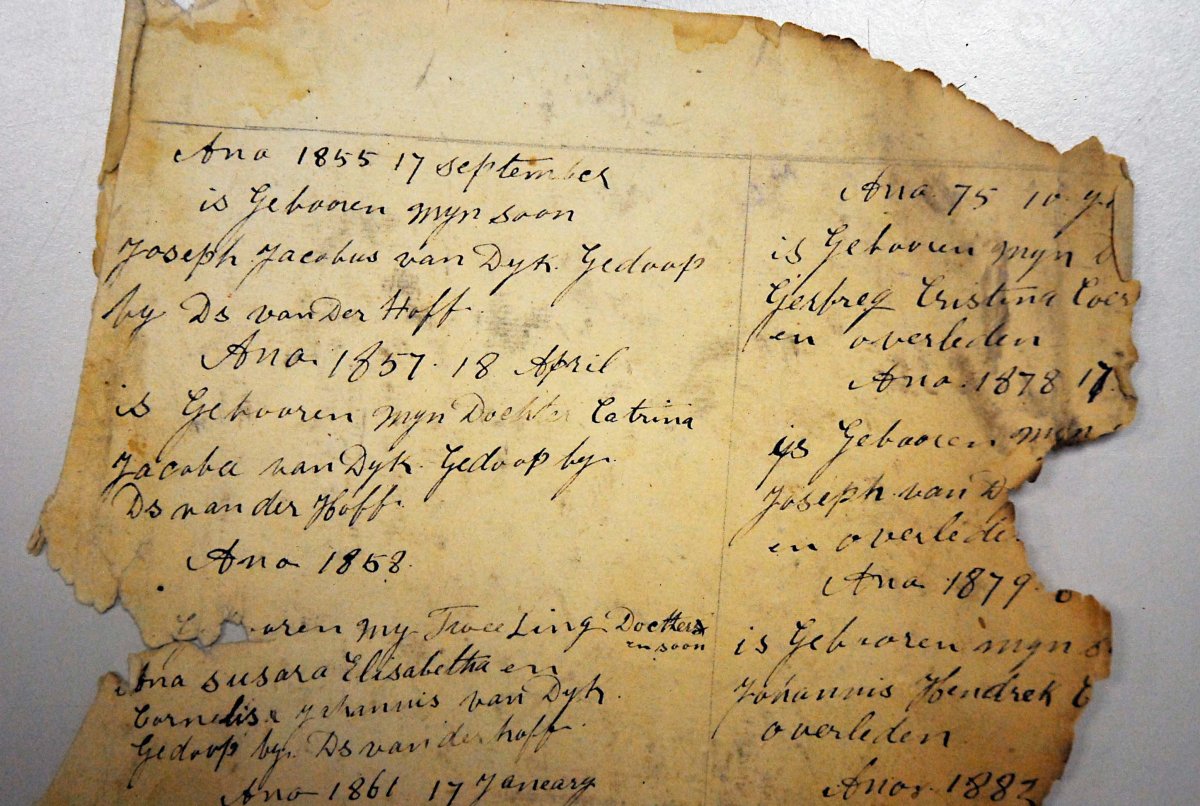 Ana 1855 17 september
is Gebooren myn soon
Joseph Jacobus van Dyk Gedoop
by Ds van Der Hoff
Ana 1857 18 April
is Gebooren myn Dochter Catrina
Jacoba van Dyk Gedoop by
Ds van der Hoff
Ana 1858
ooren my Twee Ling Docther
en soon
Ana susara Elisabetha en
Cornelis Johannis van Dyk
Gedoop by Ds van der hoff
Ana 1861 17 Janeary
Ana 75 10
is Gebooren myn
Cristina
en overleden
Ana 1878 17
is Gebooren myn
Joseph van D
en overlede
Ana 1879
is Gebooren myn
Johannis Hendrek
overleden
Anor 1883